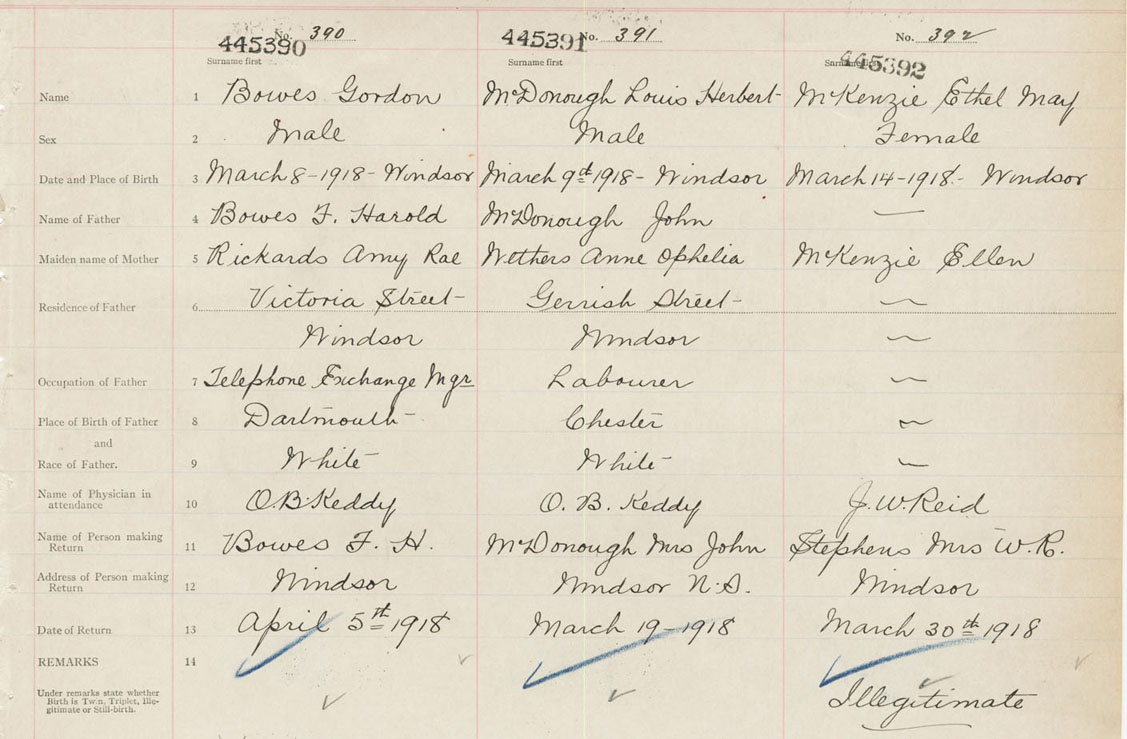 No. 390 No. 391 No. 392
445390 445391 445392
Surname first Surname first
Name 1 Bowes Gordon McDonough Louis Herbert McKenzie Ethel May
Sex 2 Male Male Female
Date and Place of Birth 3 March 8-1918- Windsor March 9th 1918- Windsor March 14-1918- Windsor
Name of Father 4 Bowes F. Harold McDonough John —
Maiden name of Mother 5 Rickards Amy Rae Withers Anne Ophelia McKenzie Ellen
Residence of Father 6 Victoria Street Gerrish Street —
Windsor Windsor —
Occupation of Father 7 Telephone Exchange Mgr Labourer —
Place of Birth of Father 8 Dartmouth Chester —
and
Race of Father. 9 White White —
Name of Physician in
attendance 10 O.B. Keddy O. B. Keddy J. W. Reid
Name of Person making
Return 11 Bowes F. H. McDonough Mrs John Stephens Mrs W. R.
Address of Person making
Return 12 Windsor Windsor N.S. Windsor
Date of Return 13 April 5th 1918 March 19-1918 March 30th 1918
REMARKS 14
Under remarks state whether
Birth is Twin, Triplet, Ille-
gitimate or Still-birth.
Illegitimate